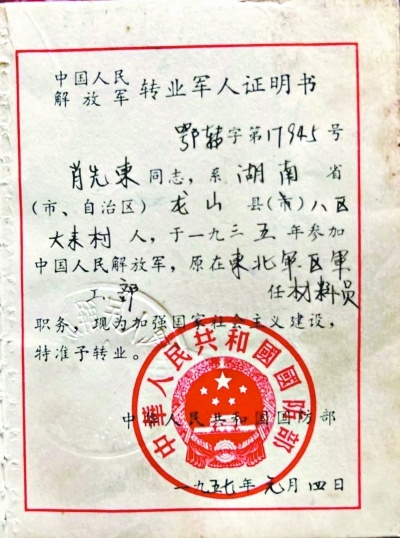 中国人民
解放军 转业军人证明书
鄂转字第17945号
肖先東同志，系湖南省
（市、自治区）龙山县（市）八区
大耒村人，于一九三五年参加
中国人民解放军，原在東北军区軍
工部 任材料员
职务，现为加强国家社会主义建设，
特准予转业。
中華人民共和國國防部
中华人民共和国国防部
一九五七年元月四日